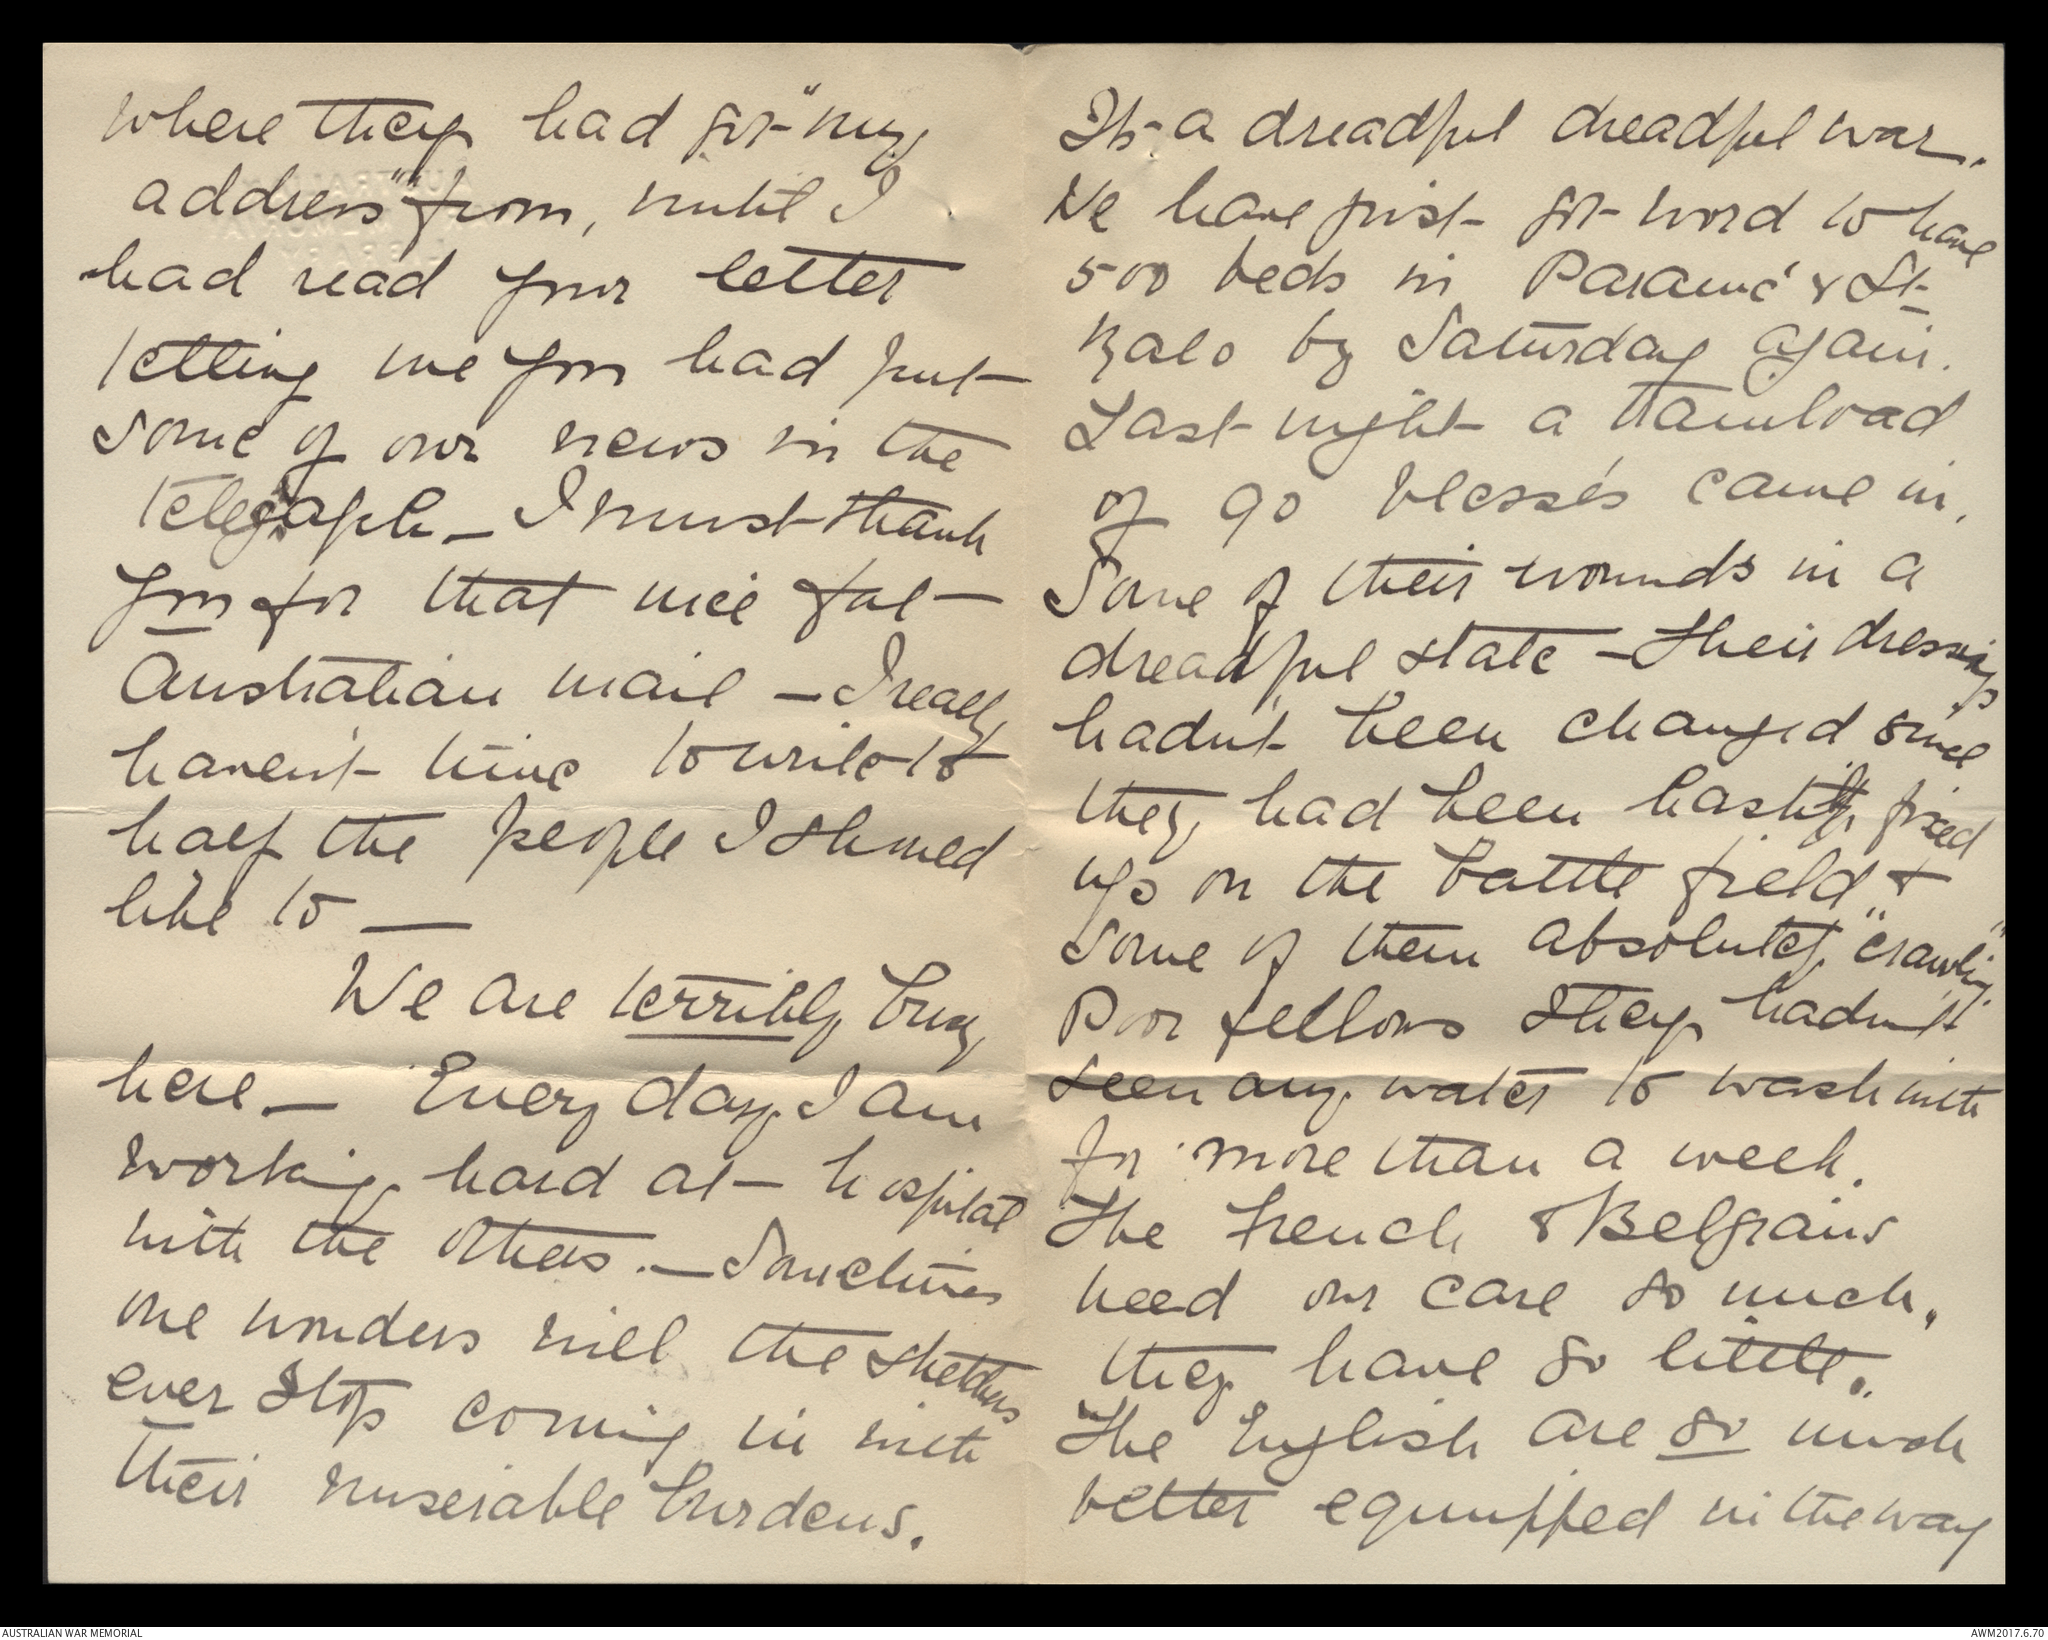 where they had got "my
address" from, until I
had read your letter
telling me you had put
some of our news in the
telegraph _ I must thank
you for that nice fat
Australian mail _ I really
haven't time to write to
half the people I should
like to _
We are terribly busy
here _ Every day I am
working hard at hospital
with the others. _ Sometimes
one wonders will the stretchers
ever stop coming in with
their miserable burdens.
It's a dreadful dreadful war.
We have just got word to have
500 beds in Paramé & St
Malo by Saturday again.
Last night a trainload
of 90 blessés came in.
Some of their wounds in a
dreadful state _ their dressings
hadn't been changed since
they had been hastily fixed
up on the battle field &
some of them absolutely "crawling"
Poor fellows they hadn't
seen any water to wash with
for more than a week.
The French & Belgians
need our care so much,
they have so little.
The English are so much
better equipped in the way
AUSTRALIAN WAR MEMORIAL
AWM2017.6.70